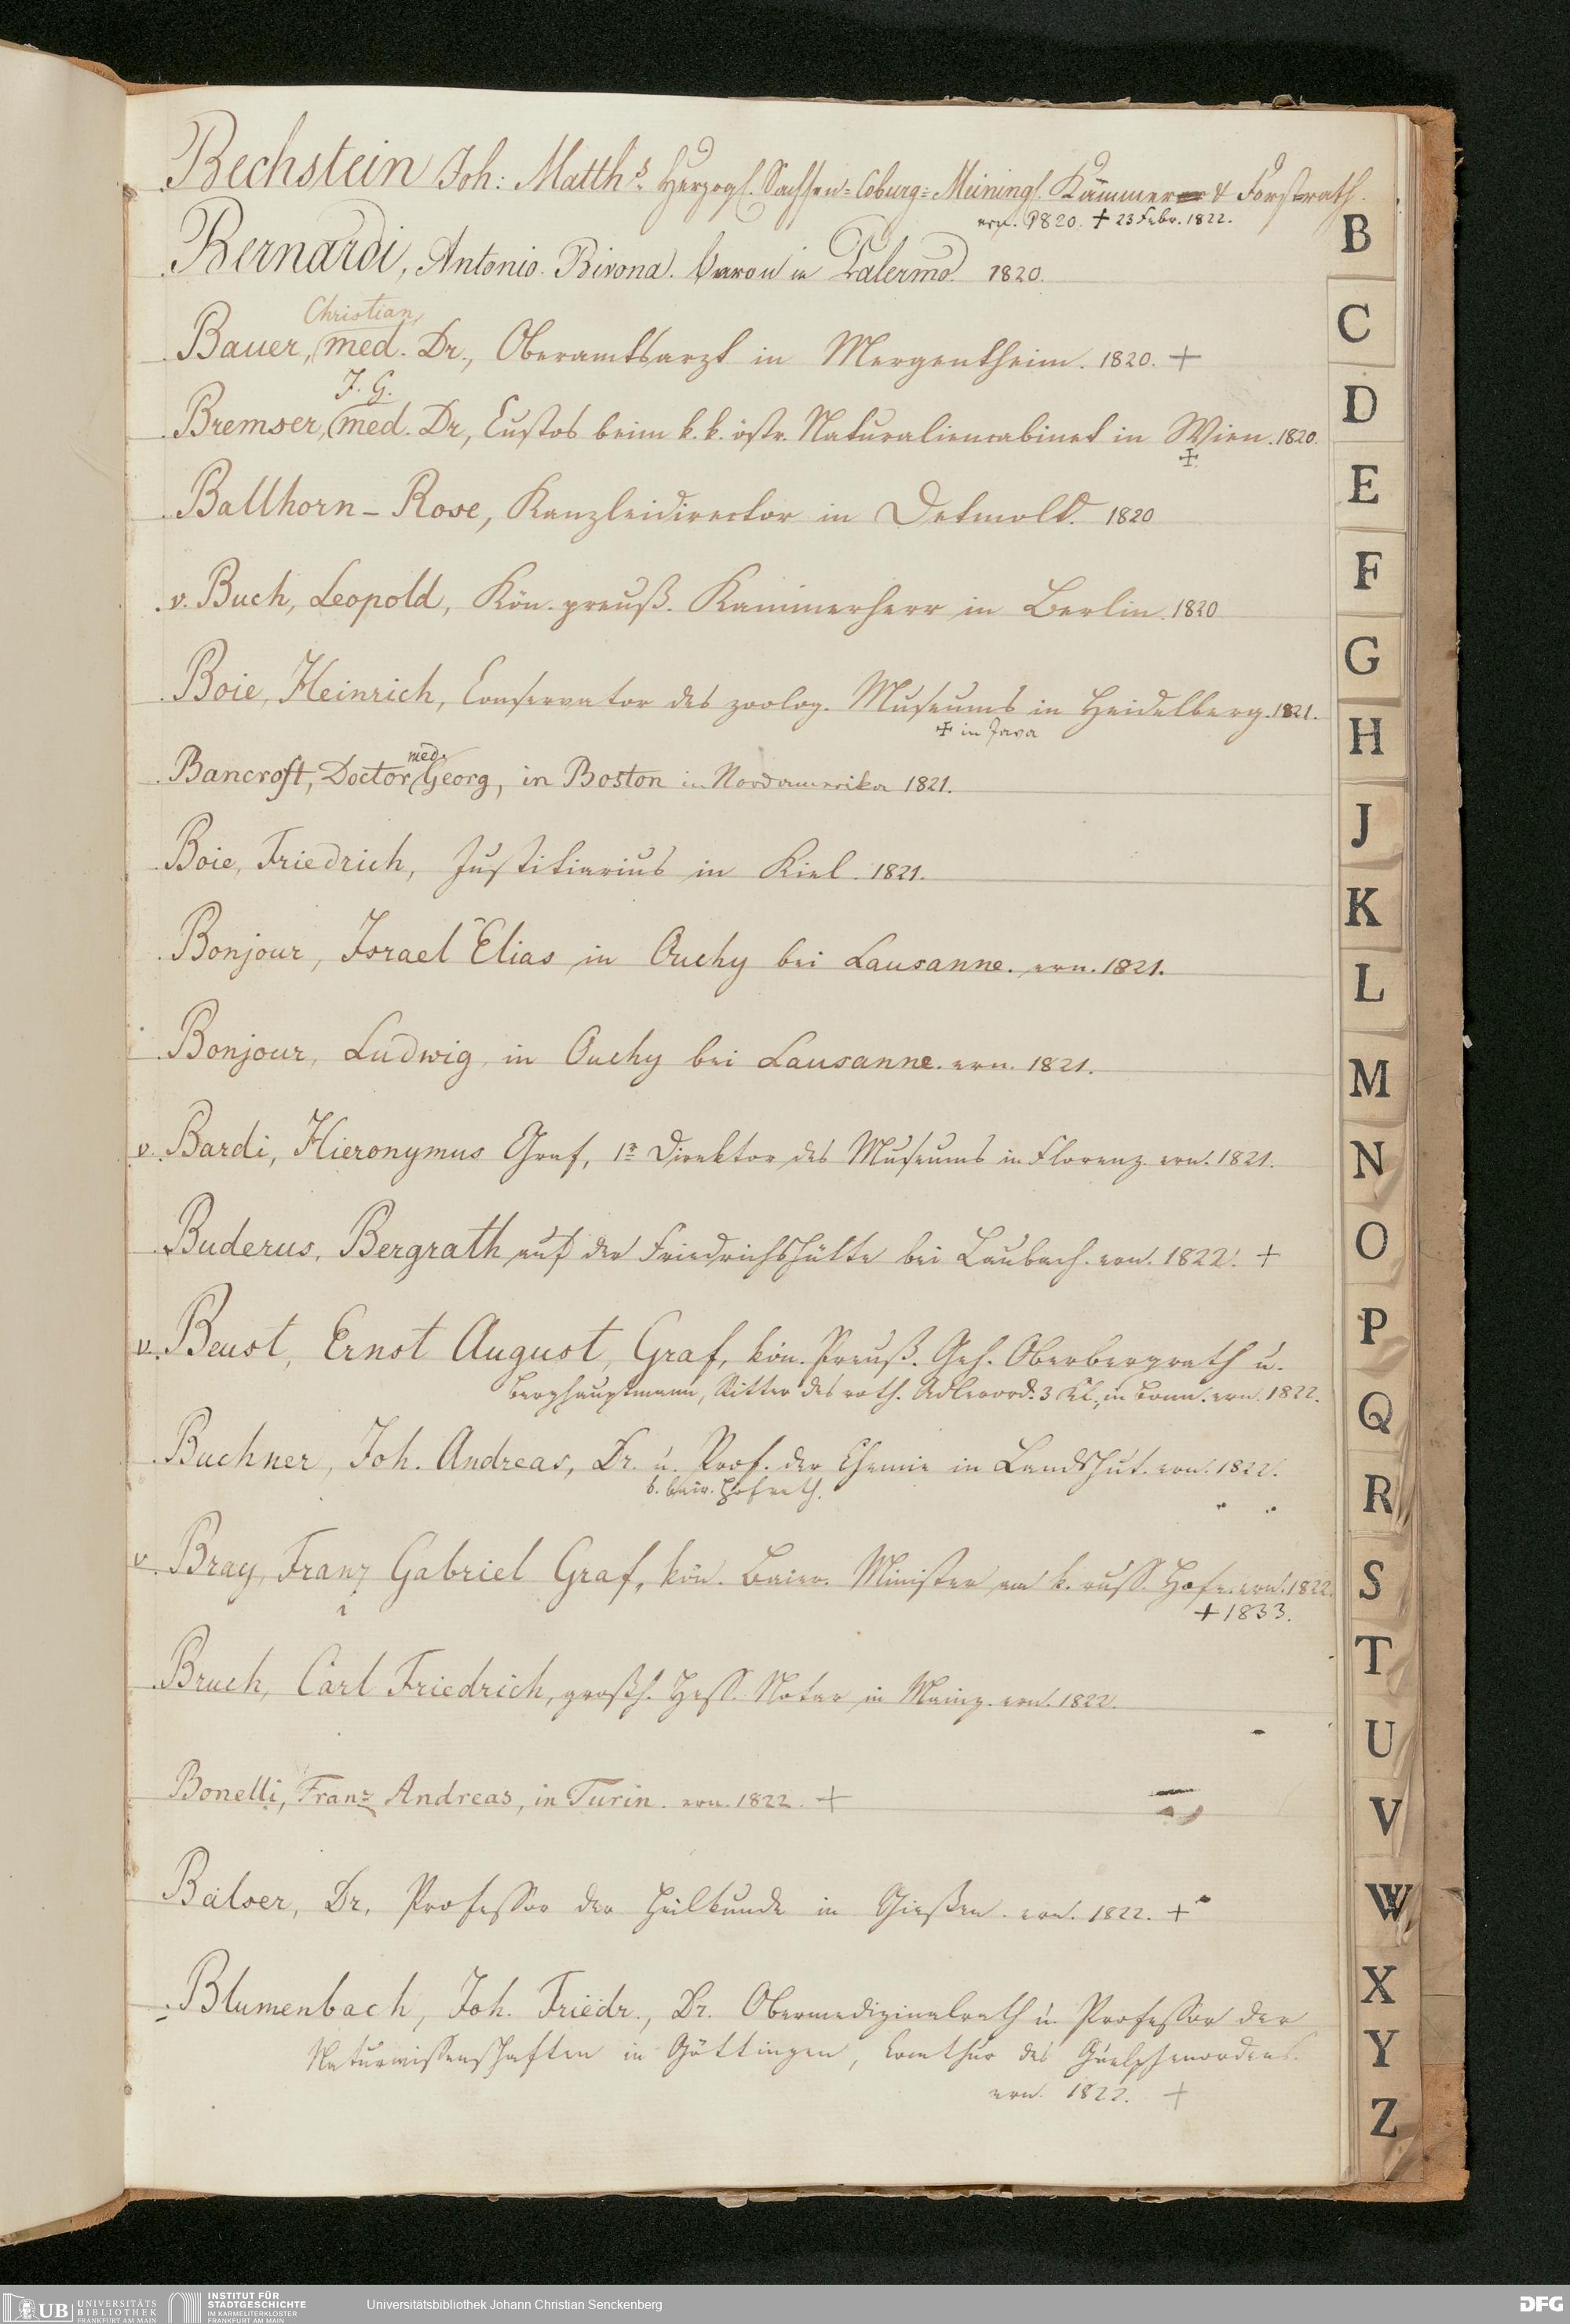 Bechstein Joh: Matths. Herzogl. Sachsen=Coburg=Meiningl. Kammer & Forstrath.
ern. 1820. + 23 Febr. 1822.
Bernardi, Antonio. Bivona. baron in Palermo. 1820.
Christian,
Bauer, med. Dr., Oberamtsarzt in Mergentheim. 1820. +
J. G.
Bremser, med. Dr, Custos beim k. k. östr. Naturaliencabinet in Wien. 1820.
+
Ballhorn-Rose, Kanzleidirector in Detmold. 1820
v. Buch, Leopold, Kön. preuß. Kammerherr in Berlin. 1820
Boie, Heinrich, Conservator des zoolog. Museums in Heidelberg. 1821.
+ in Java
med.
Bancroft, Doctor Georg, in Boston in Nordamerika 1821.
Boie, Friedrich, Justitiarius in Kiel. 1821.
Bonjour, Israel Elias in Ouchy bei Lausanne. ern. 1821.
Bonjour, Ludwig, in Ouchy bei Lausanne. ern. 1821.
v. Bardi, Hieronymus Graf, 1r Direktor des Museums in Florenz. ern. 1821.
Buderus, Bergrath auf der Friedrichshütte bei Laubach. ern. 1822. +
v. Beust, Ernst August, Graf, kön. Preuß. Geh. Oberbergrath u.
Berghauptmann, Ritter des roth. Adlerord. 3 Kl., in Bonn. ern. 1822.
Buchner, Joh. Andreas, Dr. u. Prof. der Chemie in Landshut. ern. 1822.
k. bair. Hofrath.
v. Bray, Franz Gabriel Graf, kön. Baier. Minister am k. russ. Hofe. ern. 1822.
+ 1833.
Bruch, Carl Friedrich, großh. Hess. Notar in Mainz. ern. 1822.
Bonelli, Franz Andreas, in Turin. ern. 1822. +
Balser, Dr. Professor der Heilkunde in Gießen. ern. 1822. +
Blumenbach, Joh. Friedr., Dr. Obermedizinalrath u. Professor der
Naturwissenschaften in Göttingen, Comthur des Guelphenordens.
ern. 1822. +
B
C
D
E
F
G
H
J
K
L
M
N
O
P
Q
R
S
T
U
V
W
X
Y
Z
UB UNIVERSITÄTS
BIBLIOTHEK
FRANKFURT AM MAIN
INSTITUT FÜR
STADTGESCHICHTE
IM KARMELITERKLOSTER
FRANKFURT AM MAIN
Universitätsbibliothek Johann Christian Senckenberg
DFG